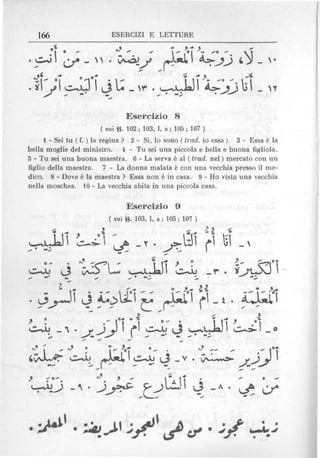 166 ESERCIZI E LETTURE
١٠ - لا، زوجة المعلم مريضة. ١١ - من أنت.
١٢ - أنا زوجة الطبيب. ١٣ - قال الملك المرأة.
Esercizio 8
( sui §§. 102 ; 103, I, a ; 105 ; 107 )
1 - Sei tu ( f. ) la regina ? 2 - Sì, lo sono ( trad. io essa ). 3 - Essa è la
bella moglie del ministro. 4 - Tu sei una piccola e bella e buona figliola.
5 - Tu sei una buona maestra. 6 - La serva è al ( trad. nel ) mercato con un
figlio della maestra. 7 - La donna malata è con una vecchia presso il me-
dico. 8 - Dove è la maestra ? Essa non è in casa. 9 - Ho visto una vecchia
nella moschea. 10 - La vecchia abita in una piccola casa.
Esercizio 9
( sui §§. 102 ; 103, I, a ; 105 ; 107 )
١ - أنا أم التاجر. ٢ - هي أخت الطبيب
٣ - بنت الطبيب ساكنة في بيت
المعلمة. ٤ - أم المعلم مع الخادمة في السوق.
٥ - أخت الطبيب في بيت أم الوزير. ٦ - بنت
الوزير حسنة. ٧ - في بيت المعلم بنت جميلة،
من هي. ٨ - في الشارع عجوز. ٩ - زينب
زينب عجوز. من هي العجوز المريضة. المعلمة.